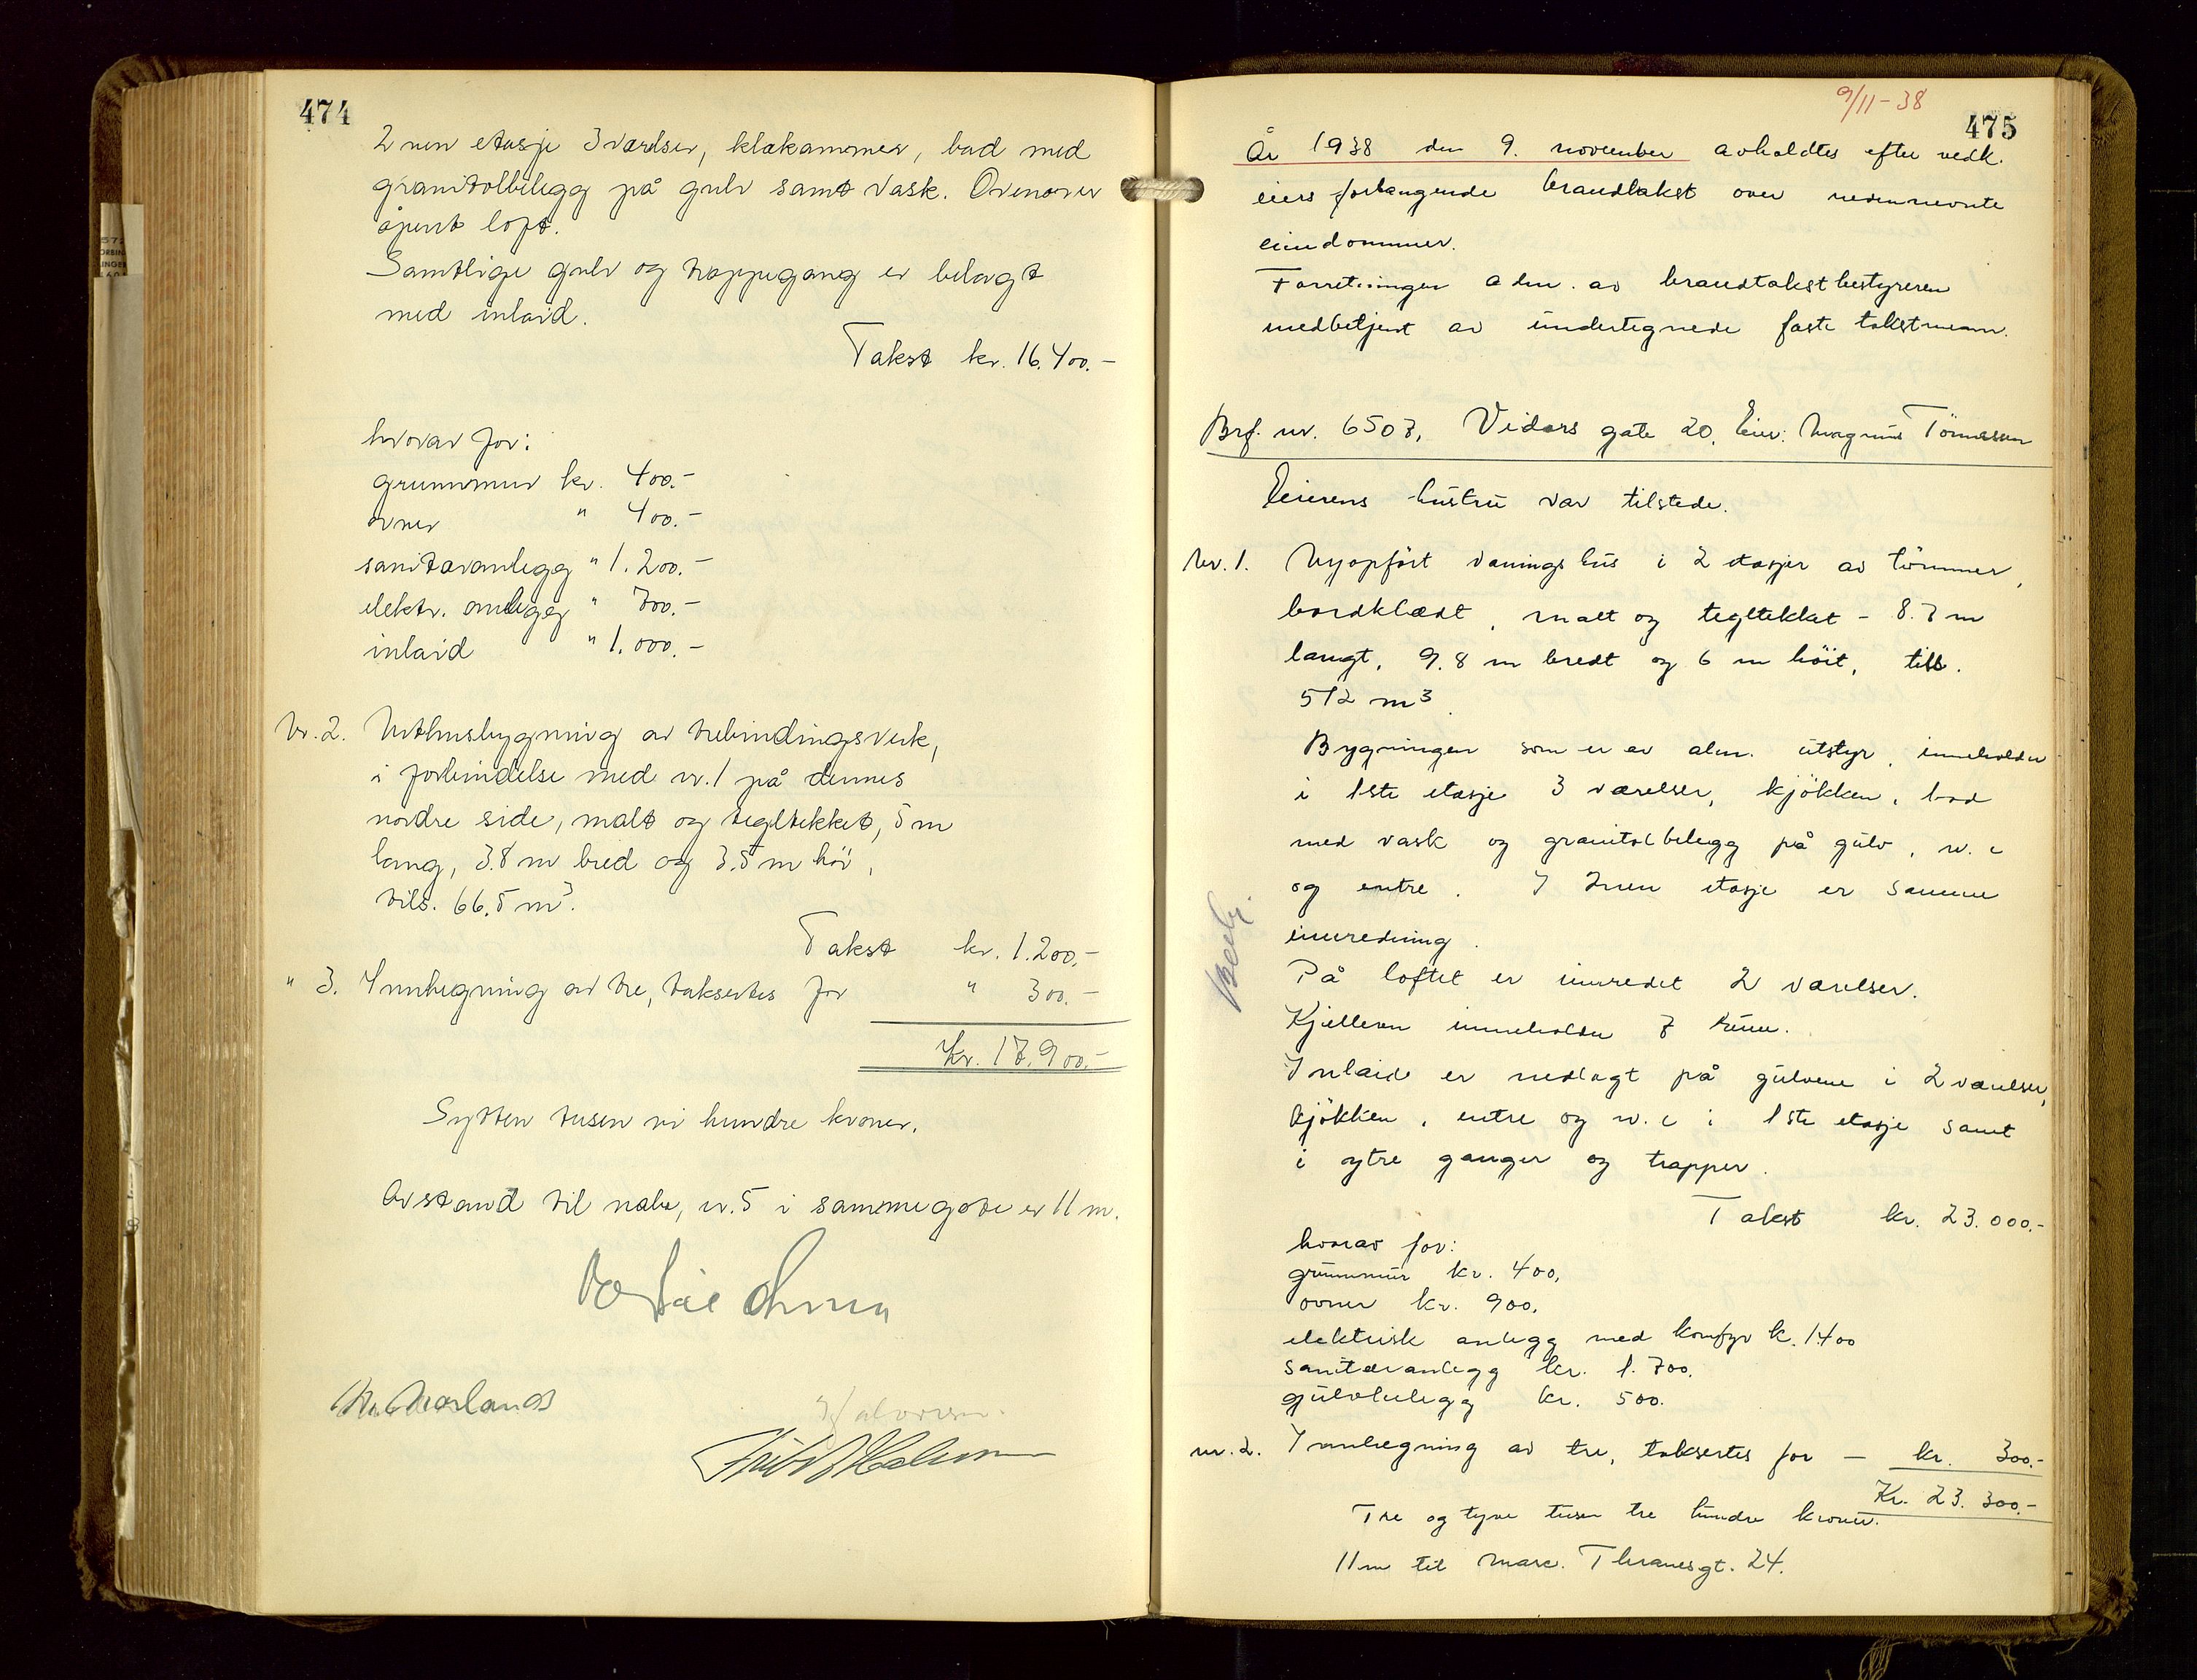 474
2nen etasje 3 værelser, klækammer, bad med
granitolbelegg på gulv samt vask. Ovenover
åpent loft.
Samtlige gulv og trappegang er belagt
med inlaid.
Takst kr. 16.400.-
hvorav for:
grunnmur kr. 400.-
ovner " 400.-
sanitæranlegg " 1.200.-
elektr. anlegg " 700.-
inlaid " 1.000.-
Nr. 2. Uthusbygning av trebindingsverk,
i forbindelse med nr. 1 på dennes
nordre side, malt og tegltekket, 5 m
lang, 3.8 m bred og 3.5 m høi,
tils. 66.5 m³.
Takst kr. 1.200.-
" 3. Innhegning av tre, taksertes for " 300.-
Kr. 17.900.-
Sytten tusen ni hundre kroner.
Avstand til nabo, nr. 5 i samme gate er 11 m.
Halvorsen.
9/11-38
475
År 1938 den 9. november avholdtes efter vedk.
eiers forlangende brandtakst over nedennevnte
eiendommer.
Forretningen adm. av brandtakstbestyreren
medbetjent av undertegnede faste takstmenn.
Brf. nr. 6507, Vidars gate 20. Eier: Magnus Tönnessen
Eierens hustru var tilstede.
Nr. 1. Nyopfört våningshus i 2 etasjer av tömmer,
bordklædt, malt og tegltekket - 8.7 m
langt, 9.8 m bredt og 6 m höit, tils.
512 m³.
Bygningen som er av alm. utstyr, inneholder
i 1ste etasje 3 værelser, kjökken, bad
med vask og granitolbelegg på gulv, w.c
og entre. I 2nen etasje er samme
innredning.
På loftet er innredet 2 værelser.
Kjelleren inneholder 7 rum.
Inlaid er nedlagt på gulvene i 2 værelser,
kjökken, entre og w.c i 1ste etasje samt
i ytre ganger og trapper.
Takst kr. 23.000.-
hvorav for:
grunnmur kr. 400.
ovner kr. 900.
elektrisk anlegg med komfyr k. 1400
sanitæranlegg kr. 1.700.
gulvbelegg kr. 500.
nr. 2. Innhegning av tre, taksertes for - kr. 300.-
Kr. 23.300.-
Tre og tyve tusen tre hundre kroner.
11 m til Marc. Thranesgt. 24.